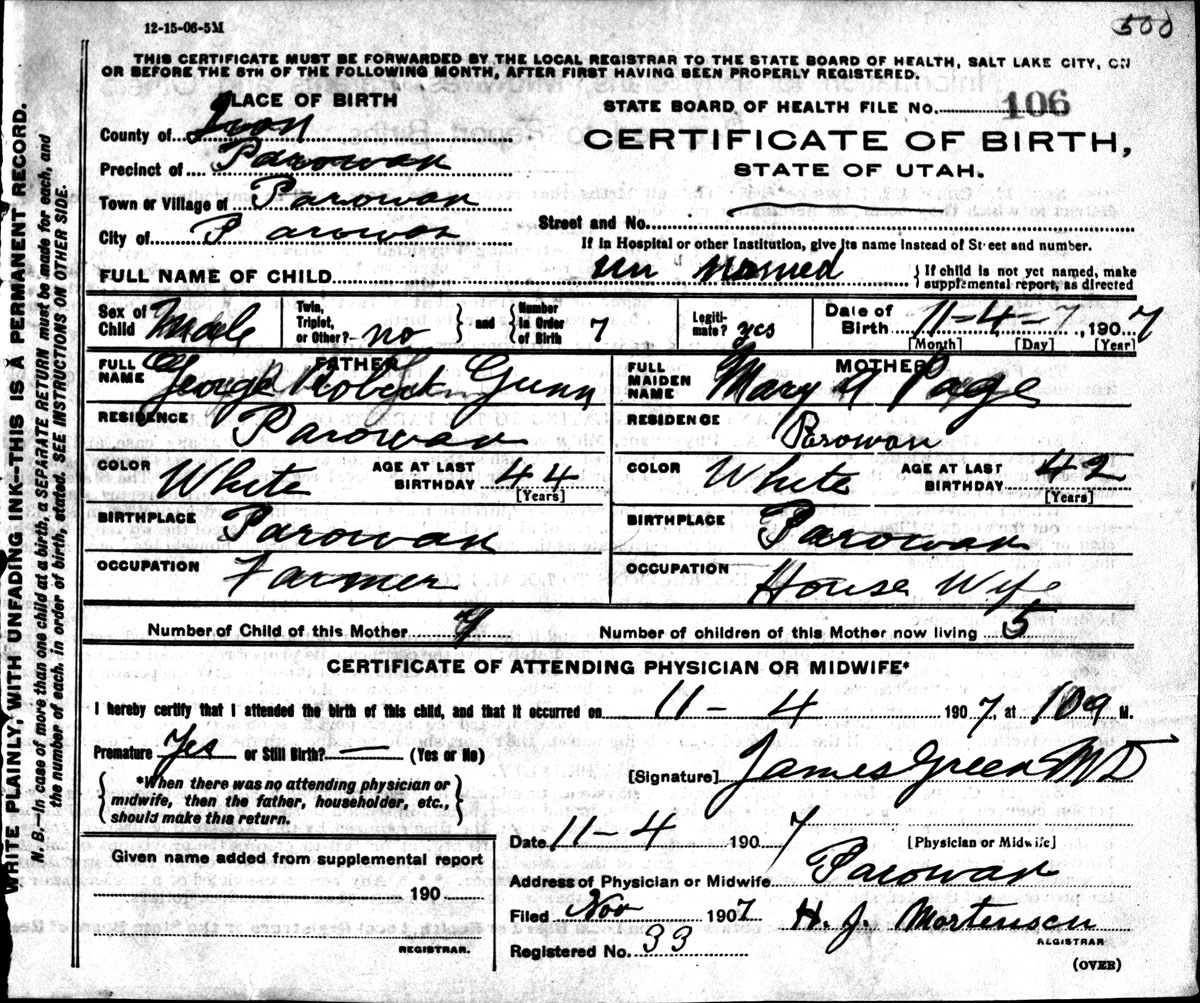 12-15-06-5M
500
THIS CERTIFICATE MUST BE FORWARDED BY THE LOCAL REGISTRAR TO THE STATE BOARD OF HEALTH, SALT LAKE CITY, ON
OR BEFORE THE 5TH OF THE FOLLOWING MONTH, AFTER FIRST HAVING BEEN PROPERLY REGISTERED.
PLACE OF BIRTH
STATE BOARD OF HEALTH FILE No. 106
County of Iron
CERTIFICATE OF BIRTH,
Precinct of Parowan
STATE OF UTAH.
Town or Village of Parowan
Street and No.
City of Parowan
If in Hospital or other Institution, give its name instead of Street and number.
FULL NAME OF CHILD Un named
{If child is not yet named, make
supplemental report, as directed
Sex of Child Male
Twin, Triplet, or Other? no } and { Number in Order of Birth 7
Legiti-mate? yes
Date of Birth 11-4-7, 1907
[Month] [Day] [Year]
FATHER
FULL NAME George Robert Gunn
MOTHER
FULL MAIDEN NAME Mary A Page
RESIDENCE Parowan
RESIDENCE Parowan
COLOR White AGE AT LAST BIRTHDAY 44
[Years]
COLOR White AGE AT LAST BIRTHDAY 42
[Years]
BIRTHPLACE Parowan
BIRTHPLACE Parowan
OCCUPATION Farmer
OCCUPATION House Wife
Number of Child of this Mother 7
Number of children of this Mother now living 5
CERTIFICATE OF ATTENDING PHYSICIAN OR MIDWIFE*
I hereby certify that I attended the birth of this child, and that it occurred on 11-4 1907, at M.
Premature Yes or Still Birth? — (Yes or No)
[Signature] James Green MD
{*When there was no attending physician or
midwife, then the father, householder, etc.,
should make this return.}
Date 11-4 1907
[Physician or Midwife]
Given name added from supplemental report
190
REGISTRAR.
Address of Physician or Midwife Parowan
Filed Nov 1907 H. J. Mortensen
REGISTRAR
Registered No. 33
(OVER)
WRITE PLAINLY, WITH UNFADING INK—THIS IS A PERMANENT RECORD.
N. B.—In case of more than one child at a birth, a SEPARATE RETURN must be made for each, and
the number of each, in order of birth, stated. SEE INSTRUCTIONS ON OTHER SIDE.